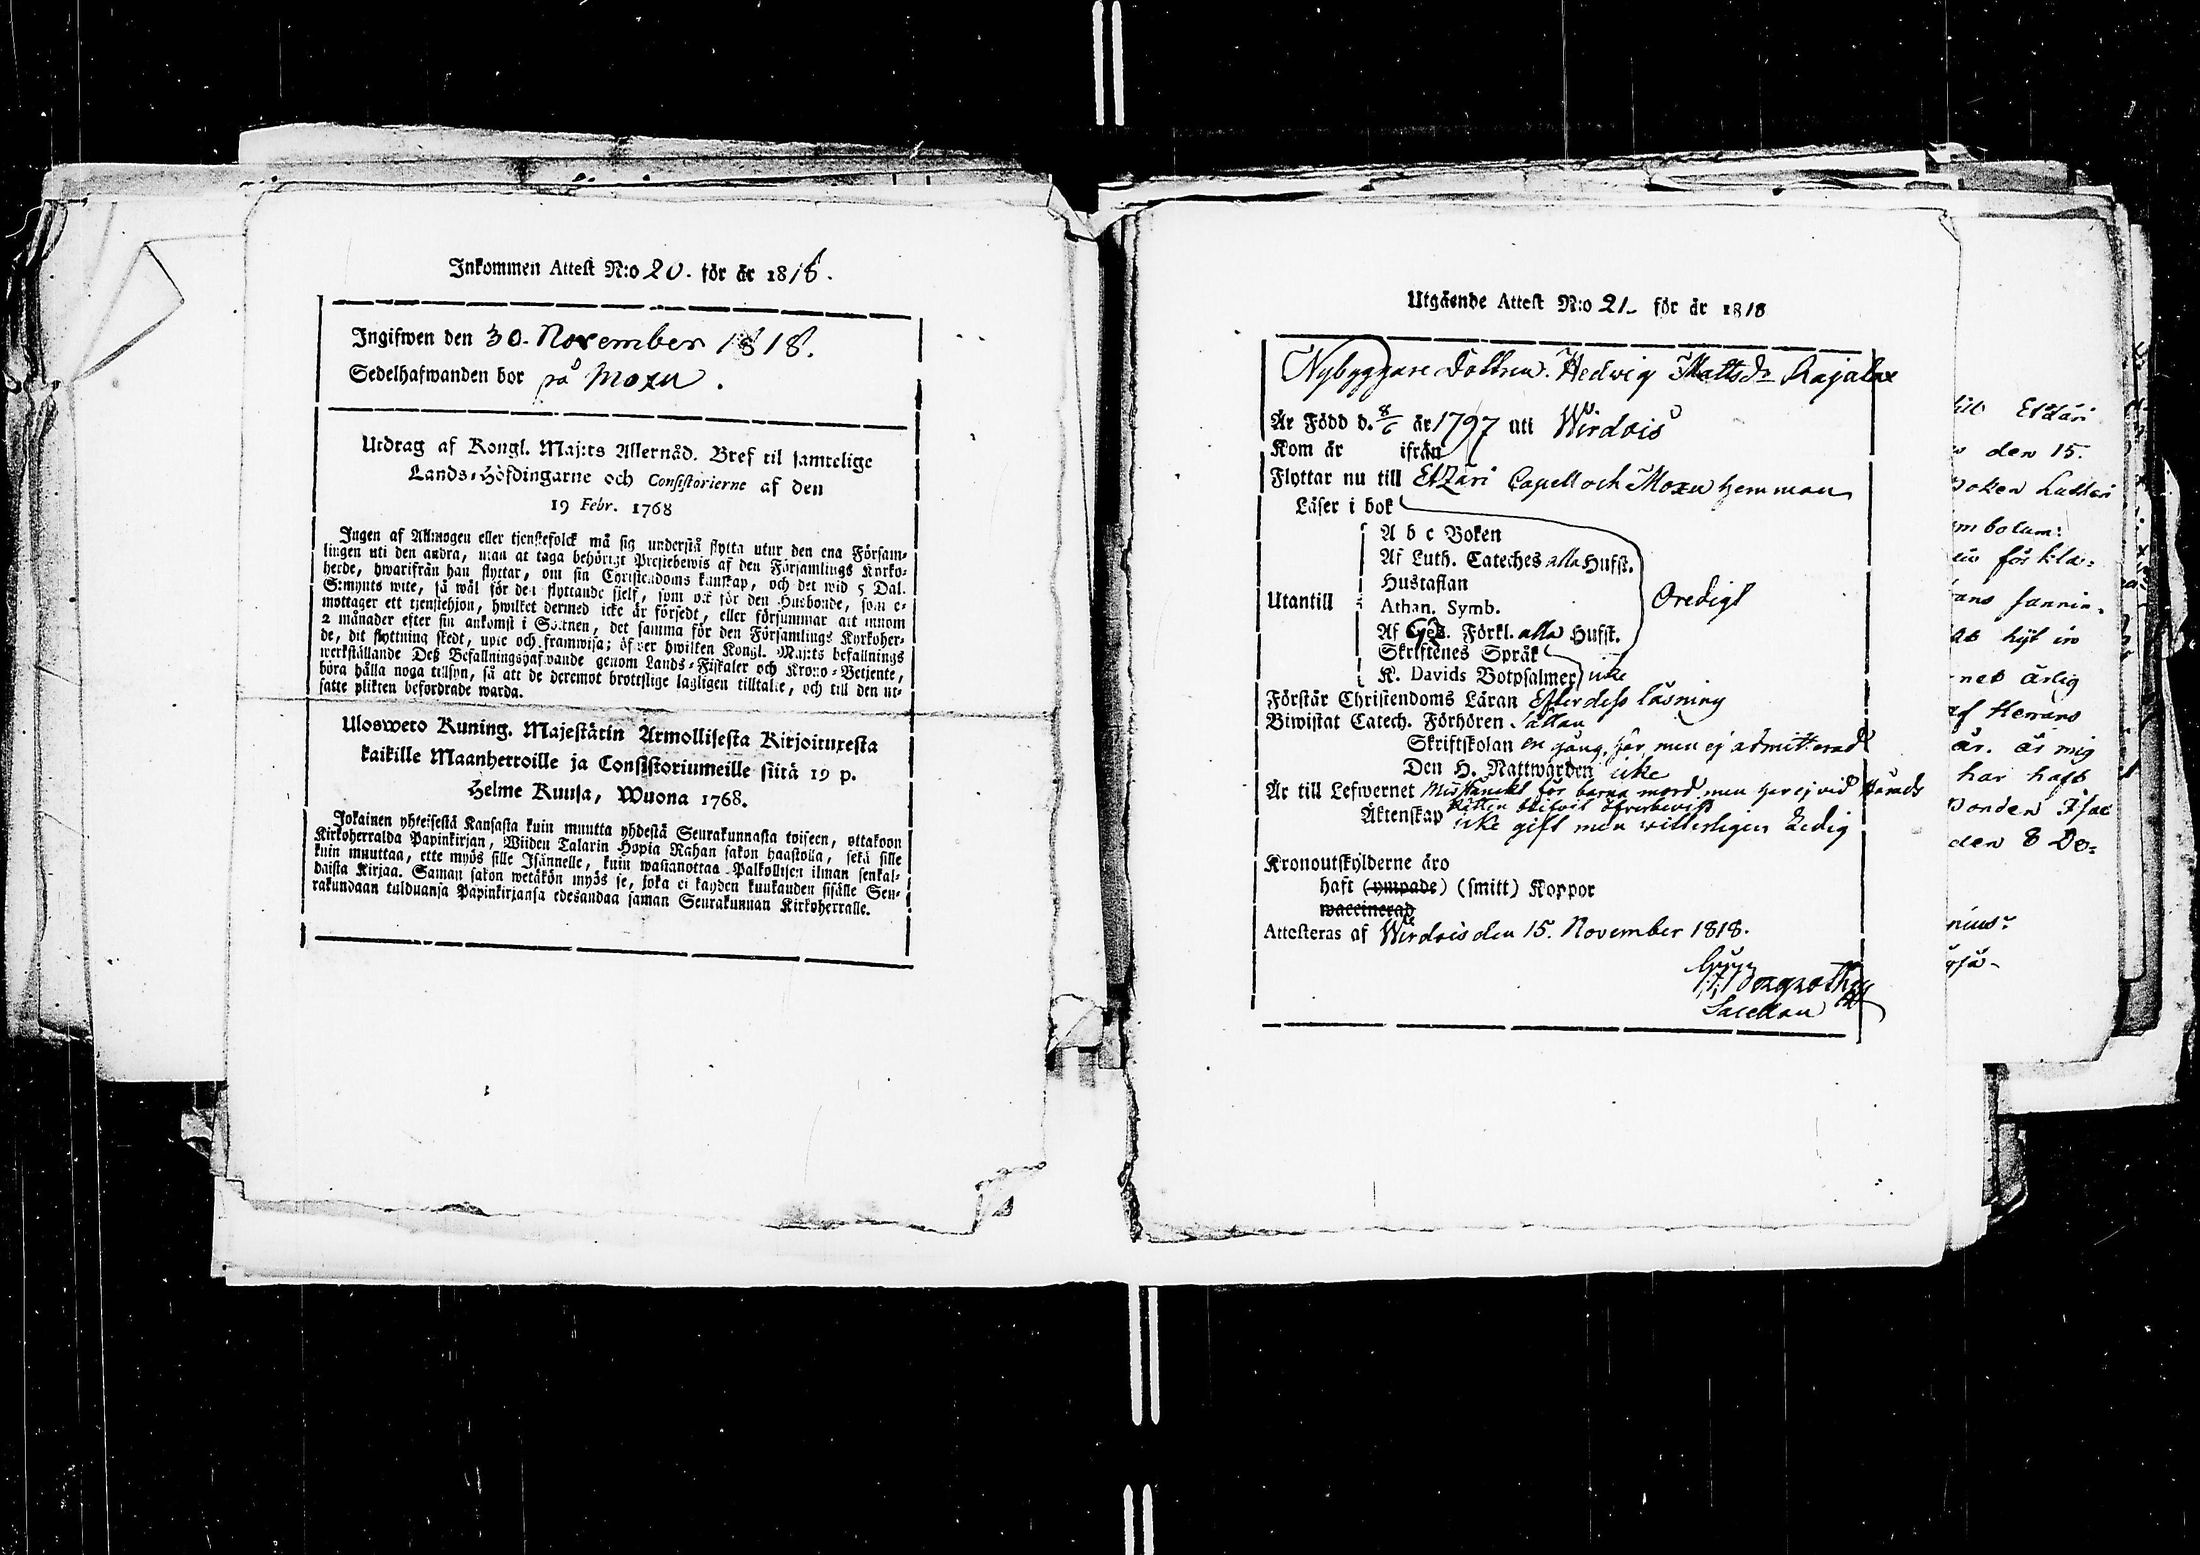 Inkommen Attest N:o 20. för år 1818.
Ingifwen den 30. November 1818.
Sedelhafwanden bor på Moxu.
Utdrag af Kongl. Maj:ts Allernåd. Bref til samtelige
Lands-Höfdingarne och Consistorierne af den
19 Febr. 1768
Ingen af Allmogen eller tjenstefolck må sig understå flytta utur den ena Försam-
lingen uti den andra, utan at taga behörigt Prestebewis af den Församlings Kyrko-
herde, hwarifrån han flyttar, om sin Christendoms kunskap, och det wid 5 Dal.
S:mynts wite, så wäl för den flyttande sjelf, som ock för den Husbonde, som e-
mottager ett tjenstehjon, hwilket dermed icke är försedt, eller försummar att innom
2 månader efter sin ankomst i Socknen, det samma för den Församlings Kyrkoher-
de, dit flyttning skedt, upte och framwisa; öfwer hwilken Kongl. Maj:ts befallnings
werkställande Deß Befallningshafwande genom Lands-Fiskaler och Krono-Betjente,
böra hålla noga tillsyn, så att de deremot brottslige lagligen tilltalte, och till den ut-
satte plikten befordrade warda.
Ulosweto Kuning. Majestätin Armollisesta Kirjoituxesta
kaikille Maanherroille ja Consistoriumeille siitä 19 p.
Helme Kuusa, Wuona 1768.
Jokainen yhteisestä Kansasta kuin muutta yhdestä Seurakunnasta toiseen, ottakoon
Kirkoherralda Papinkirjan, Wiiden Talarin Hopia Rahan sakon haastolla, sekä sille
kuin muuttaa, ette myös sille Isännelle, kuin wastanottaa Palkollisen ilman senkal-
daista Kirjaa. Saman sakon wetäkön myös se, joka ei kahden kuukauden sisälle Seu-
rakundaan tulduansa Papinkirjansa edesandaa saman Seurakunnan Kirkoherralle.
Utgående Attest N:o 21. för år 1818
Nybyggare Dottren. Hedwig Mattsdr Rajalax
Är Född d. 8/6 år 1797 uti Wirdois
Kom år ifrån
Flyttar nu till Etzäri Capell och Moxu hemman
Läser i bok
A b c Boken
Af Luth. Cateches alla Hufst.
Hustaflan
Utantill Athan. Symb. Oredigt
Af Förkl. alla Hufst.
Skriftenes Språk
K. Davids Botpsalmer icke
Förstår Christendoms Läran Efter dess läsning
Biwistat Catech. Förhören Sällan
Skriftskolan en gång, här, men ej admitterad
Den H. Nattwarden icke
Är till Lefwernet Misstänckt för barna mord men har ej vid Härads
Rätten blifvit öfverbevist
Äktenskap icke gift men witterligen Ledig
Kronoutskylderne äro
haft (ympade) (smitt) Koppor
waccinerad
Attesteras af Wirdois den 15. November 1818.
Sacellan
Etzäri
den 15.
Boken Lutheri
förkla-
net ärlig
af Herrans
år. är mig
har haft
Bonden Isac
den 8 De-